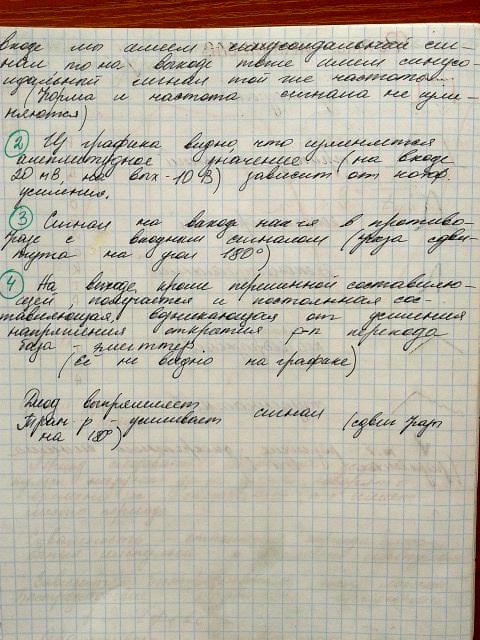 входе мы имеем синусоидальный сиг-
нал то на выходе тоже имеем синусо-
идальный сигнал той же частоты.
(Форма и частота сигнала не изме-
няются)
2 Из графика видно, что изменяется
амплитудное значение (на входе
20 мВ, на вых - 10 В) зависит от коэф.
усиления.
3 Сигнал на выходе нах-ся в противо-
фазе с входным сигналом (фаза сдви-
нута на угол 180°)
4 На выходе, кроме переменной составляю-
щей, получается и постоянная сос-
тавляющая, возникающая от усиления
напряжения открытия p-n перехода
база - эмиттер
(Её не видно на графике)
Диод выпрямляет
Тран-р - усиливает сигнал (сдвиг фазы
на 180°)